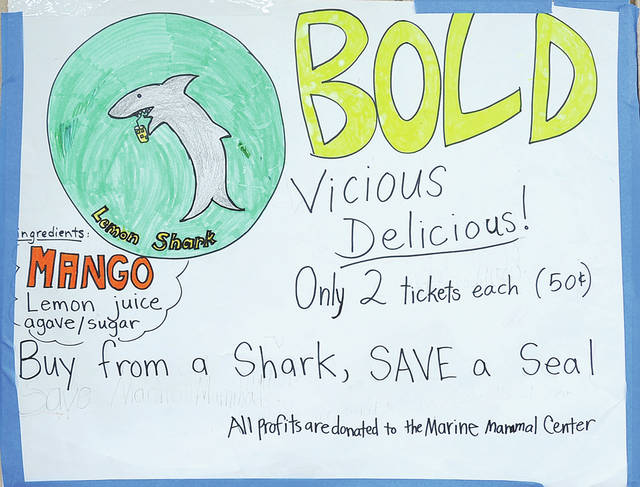 BOLD
Vicious
Delicious!
Only 2 tickets each (50¢)
Lemon Shark
ingredients:
MANGO
Lemon juice
agave/sugar
Buy from a Shark, SAVE a Seal
All profits are donated to the Marine Mammal Center